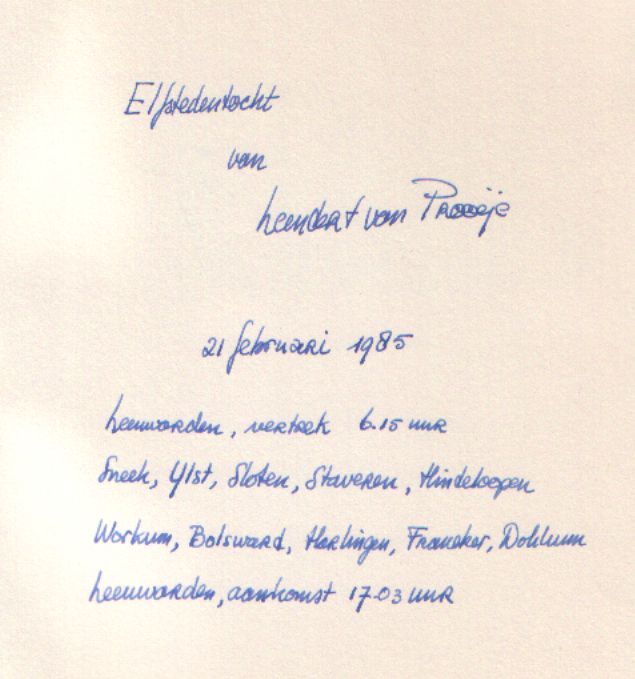 Elfstedentocht
van
Leendert van Prooije
21 februari 1985
Leeuwarden, vertrek 6.15 uur
Sneek, Ylst, Sloten, Staveren, Hindeloopen
Workum, Bolsward, Harlingen, Franeker, Dokkum
Leeuwarden, aankomst 17.03 uur